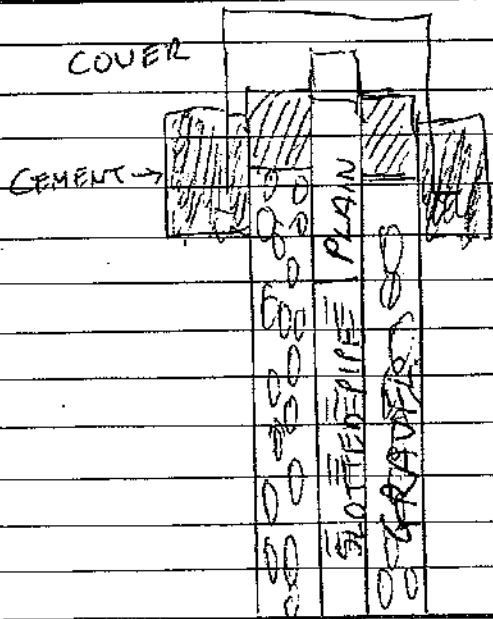 COVER
CEMENT
PLAIN
SLOTTED PIPE
GRAVEL